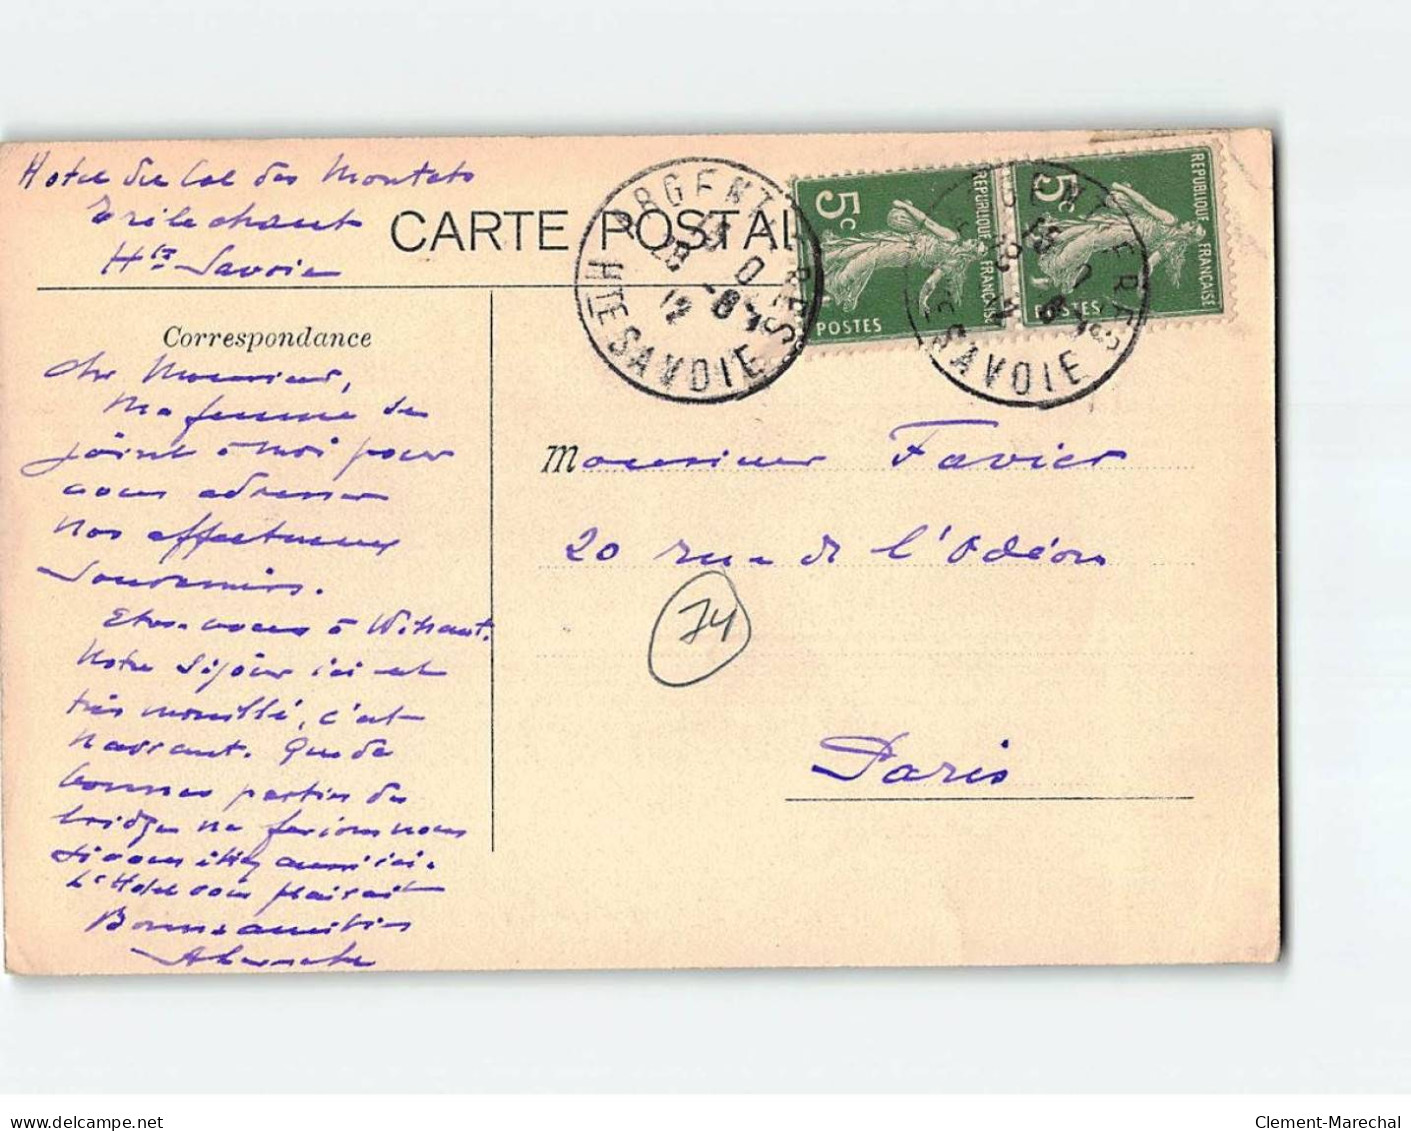 Hotel du Col des Montets
Trélechant
Hte Savoie
CARTE POSTALE
ARGENTIERES
Hte SAVOIE
28 -8
12
5c
POSTES
REPUBLIQUE FRANÇAISE
5c
POSTES
REPUBLIQUE FRANÇAISE
Correspondance
Cher Monsieur,
Ma femme se
joint à moi pour
vous adresser
nos affectueux
souvenirs.
Etes-vous à Wissant.
Notre séjour ici est
très mouillé, c'est
navrant. Que de
bonnes parties de
bridge ne ferions nous
si vous étiez aussi ici.
L'Hotel vous plairait
Bonnes amitiés
Monsieur Favier
20 rue de l'Odéon
74
Paris
Clement-Marechal